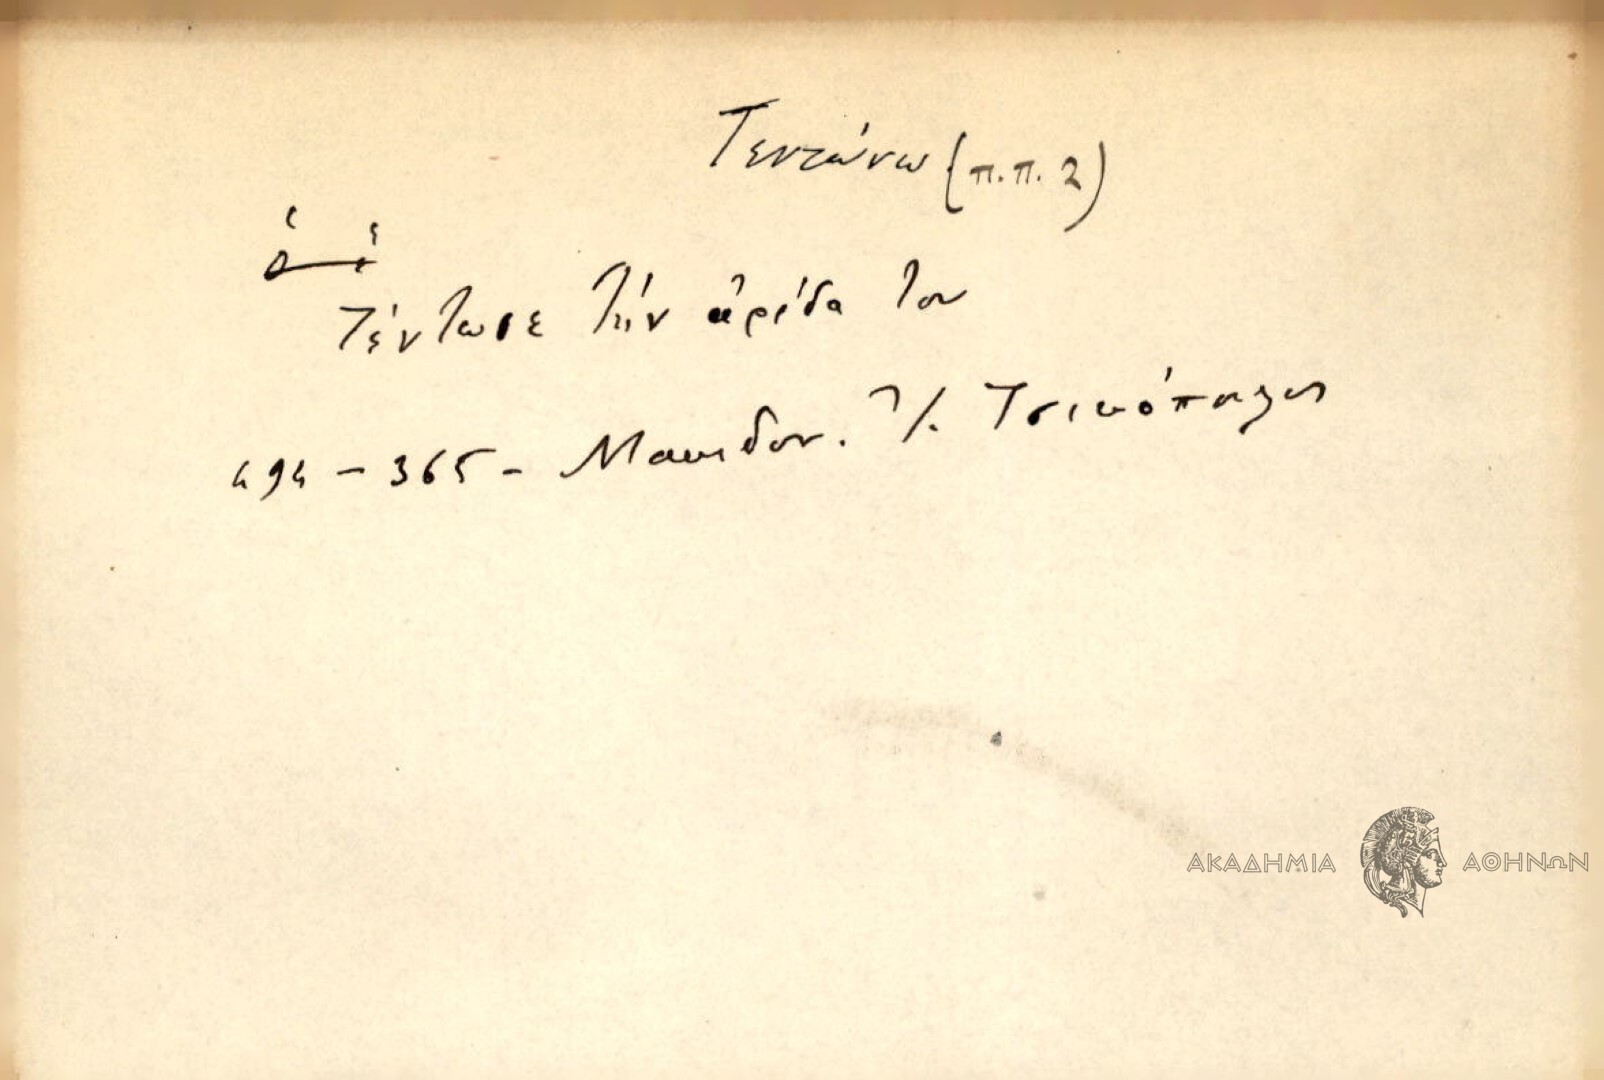 Τεντώνω (π.π. 2)
Τέντωσε τὴν ἀρίδα του
494 - 365 - Μακεδον. Τσικόπουλος
ΑΚΑΔΗΜΙΑ ΑΘΗΝΩΝ